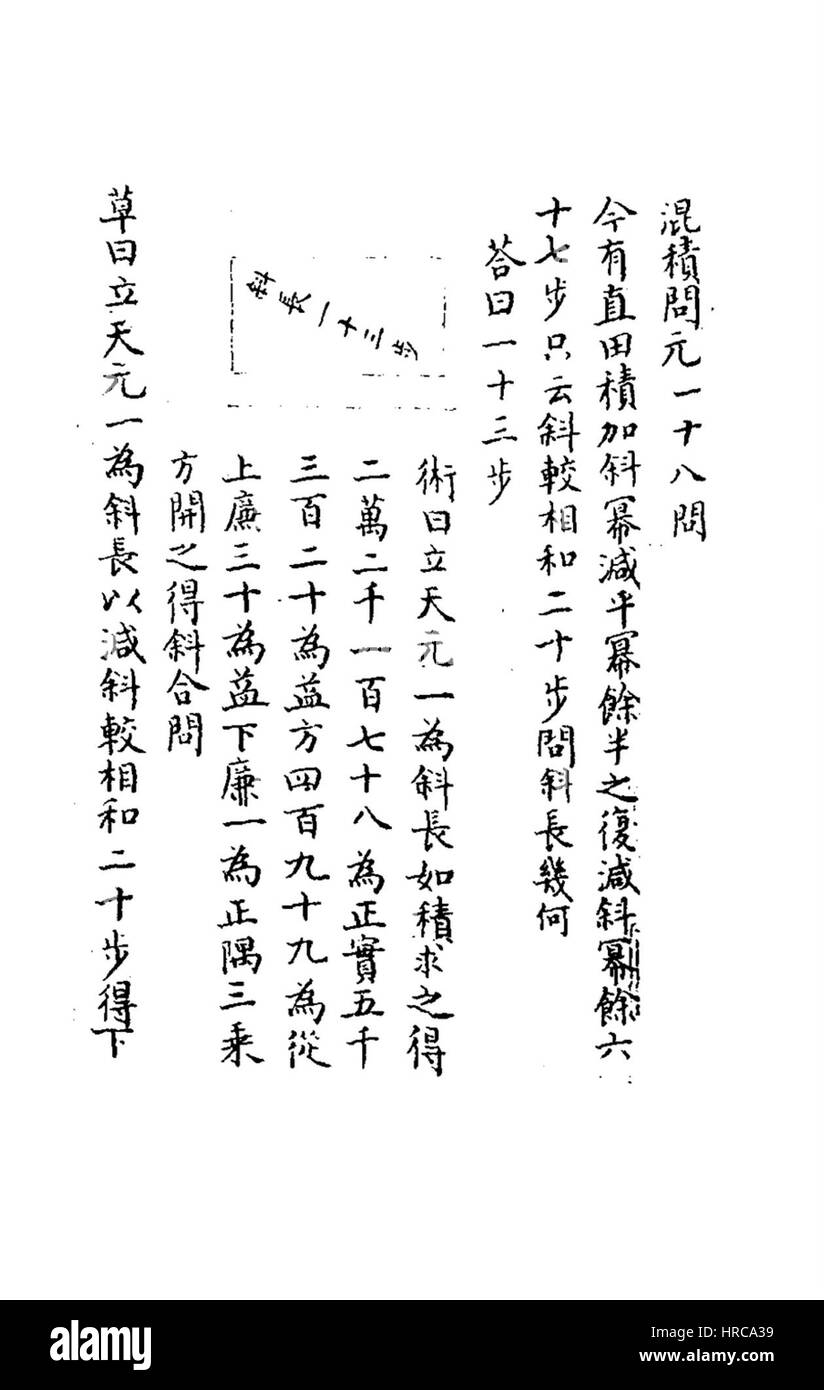 混積問元一十八問
今有直田積加斜冪減平冪餘半之復減斜冪餘六
十七步只云斜較相和二十步問斜長幾何
荅曰一十三步
斜長一十三步
術曰立天元一為斜長如積求之得
二萬二千一百七十八為正實五千
三百二十為益方四百九十九為從
上廉三十為益下廉一為正隅三乘
方開之得斜合問
草曰立天元一為斜長以減斜較相和二十步得下
a alamy stock photo
alamy
Image ID: HRCA39
www.alamy.com